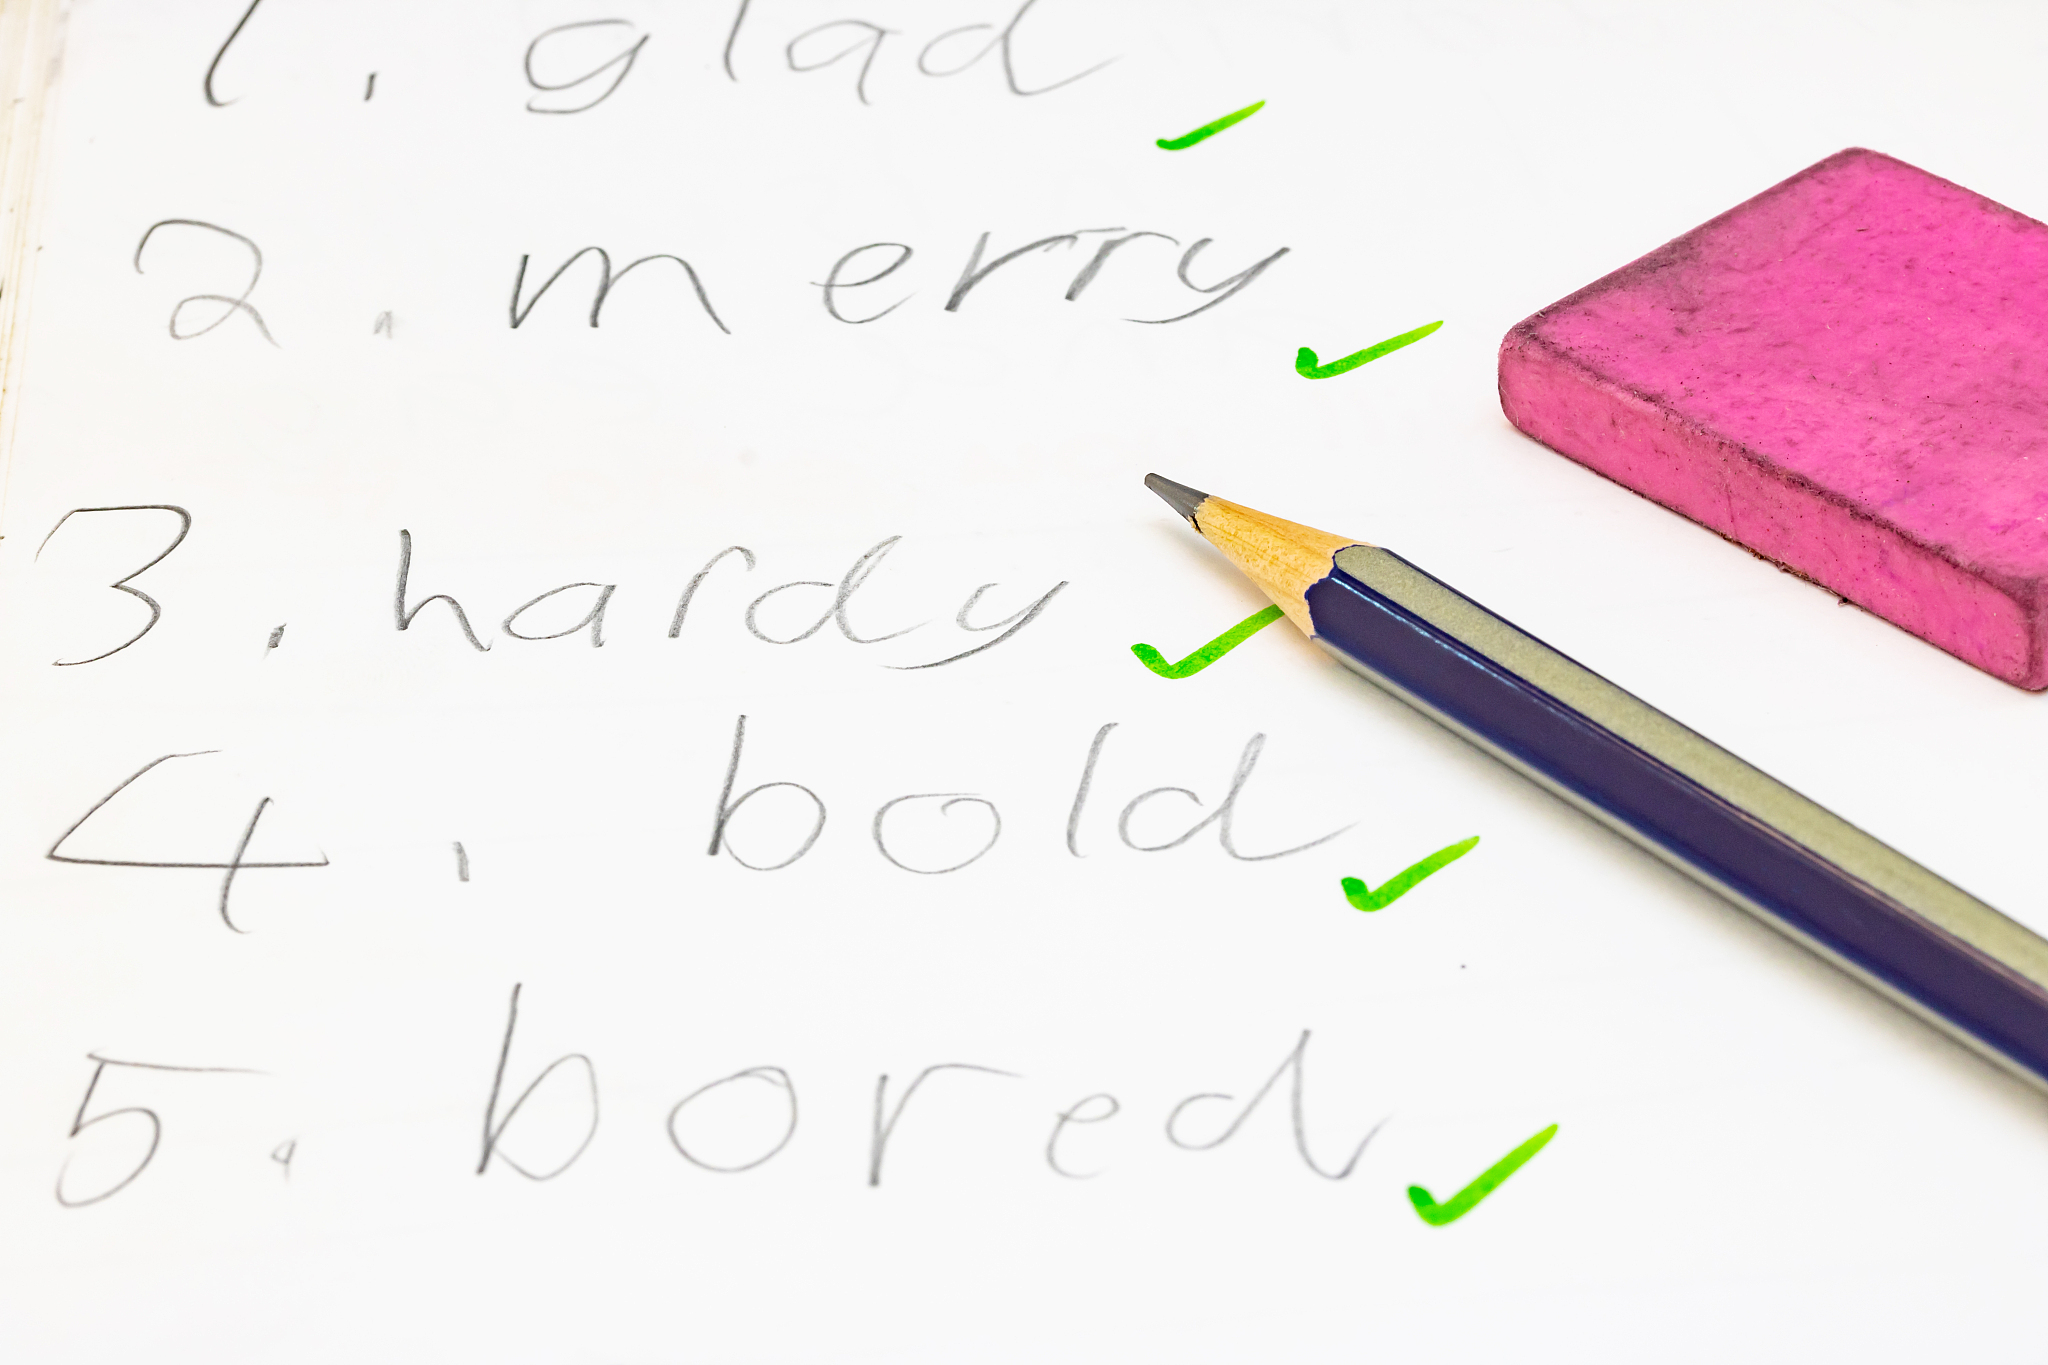 1. glad
2. merry
3. hardy
4. bold
5. bored